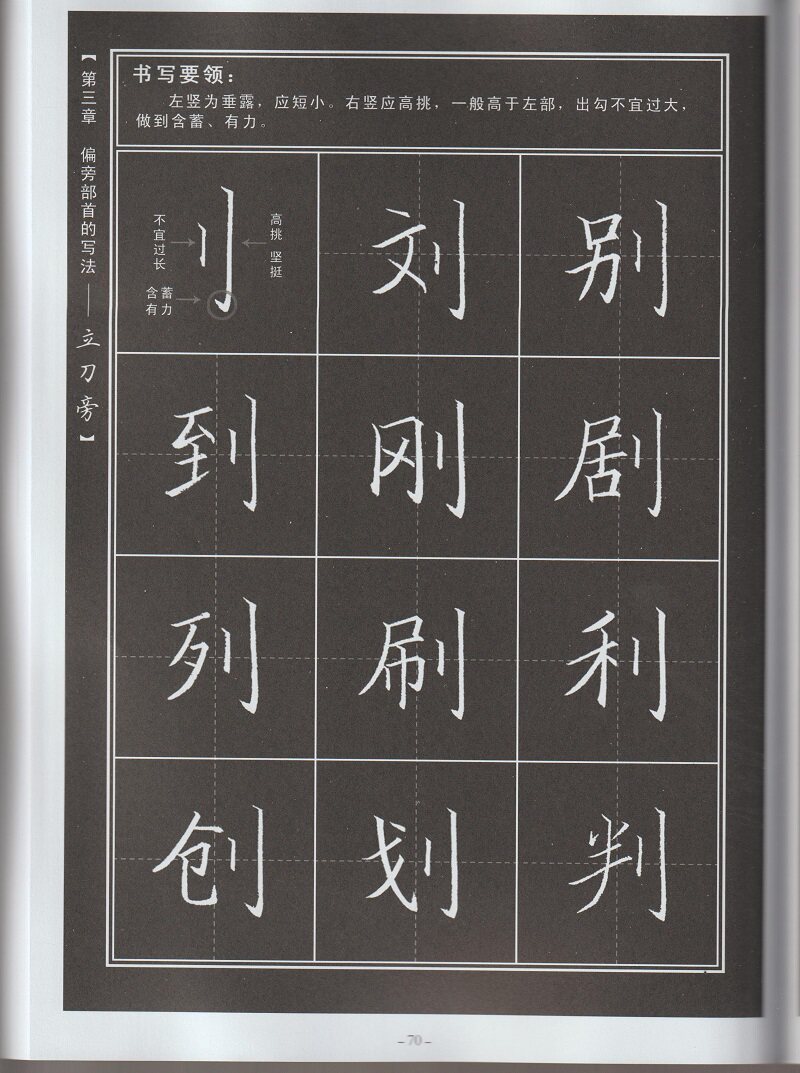 【第三章 偏旁部首的写法——立刀旁】
书写要领：
左竖为垂露，应短小。右竖应高挑，一般高于左部，出勾不宜过大，
做到含蓄、有力。
不宜过长
刂
高挑 坚挺
含蓄
有力
刘
别
到
刚
剧
列
刷
利
创
划
判
-70-